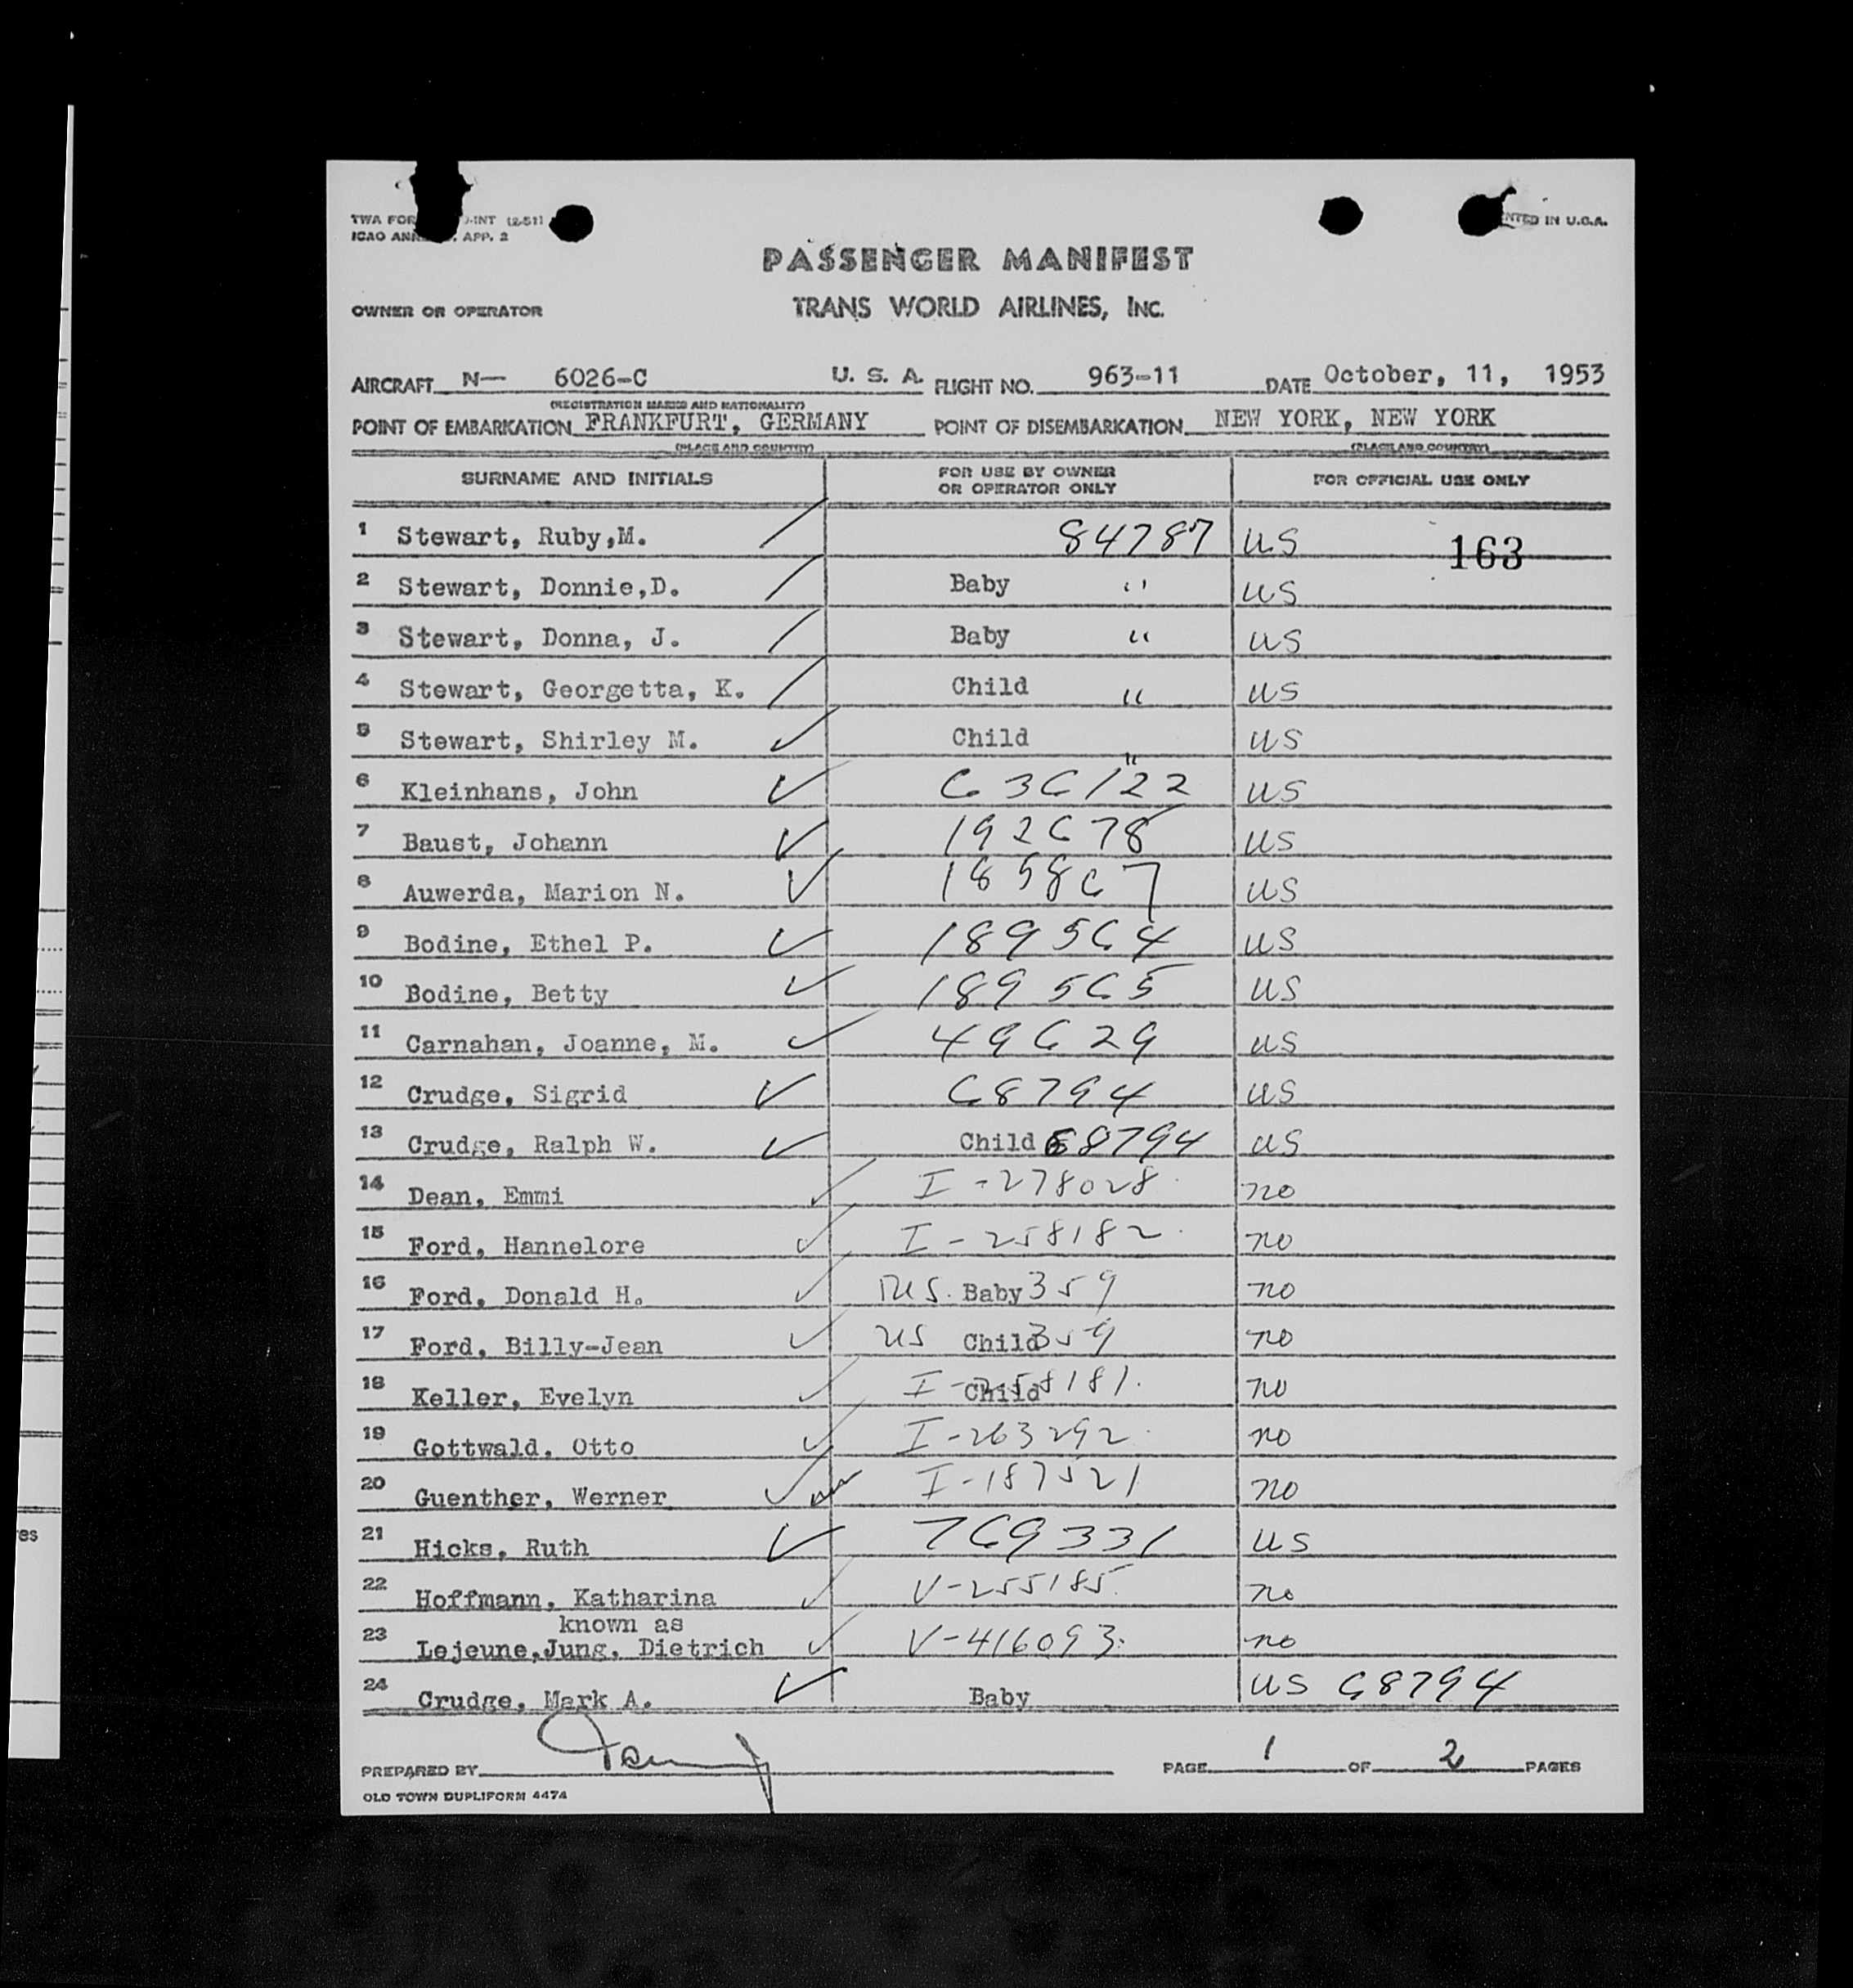 TWA FOR -INT (2-51)
ICAO ANN APP. 2
NTED IN U.S.A.
PASSENGER MANIFEST
OWNER OR OPERATOR TRANS WORLD AIRLINES, INC.
AIRCRAFT N— 6026-C U. S. A. FLIGHT NO. 963-11 DATE October, 11, 1953
(REGISTRATION MARKS AND NATIONALITY)
POINT OF EMBARKATION FRANKFURT, GERMANY POINT OF DISEMBARKATION NEW YORK, NEW YORK
(PLACE AND COUNTRY) (PLACE AND COUNTRY)
SURNAME AND INITIALS FOR USE BY OWNER OR OPERATOR ONLY FOR OFFICIAL USE ONLY
1 Stewart, Ruby,M. 84787 US 163
2 Stewart, Donnie,D. Baby " US
3 Stewart, Donna, J. Baby " US
4 Stewart, Georgetta, K. Child " US
5 Stewart, Shirley M. Child " US
6 Kleinhans, John 636122 US
7 Baust, Johann 192678 US
8 Auwerda, Marion N. 185867 US
9 Bodine, Ethel P. 189564 US
10 Bodine, Betty 189565 US
11 Carnahan, Joanne, M. 49629 US
12 Crudge, Sigrid 68794 US
13 Crudge, Ralph W. Child 68794 US
14 Dean, Emmi I-278028 no
15 Ford, Hannelore I-258182 no
16 Ford, Donald H. US. Baby 359 no
17 Ford, Billy-Jean US Child 359 no
18 Keller, Evelyn Child I-258181. no
19 Gottwald, Otto I-263292 no
20 Guenther, Werner I-187521 no
21 Hicks, Ruth 769331 US
22 Hoffmann, Katharina V-255185. no
known as
23 Lejeune,Jung, Dietrich V-416093. no
24 Crudge, Mark A. Baby US 68794
PREPARED BY PAGE 1 OF 2 PAGES
OLD TOWN DUPLIFORM 4474
es